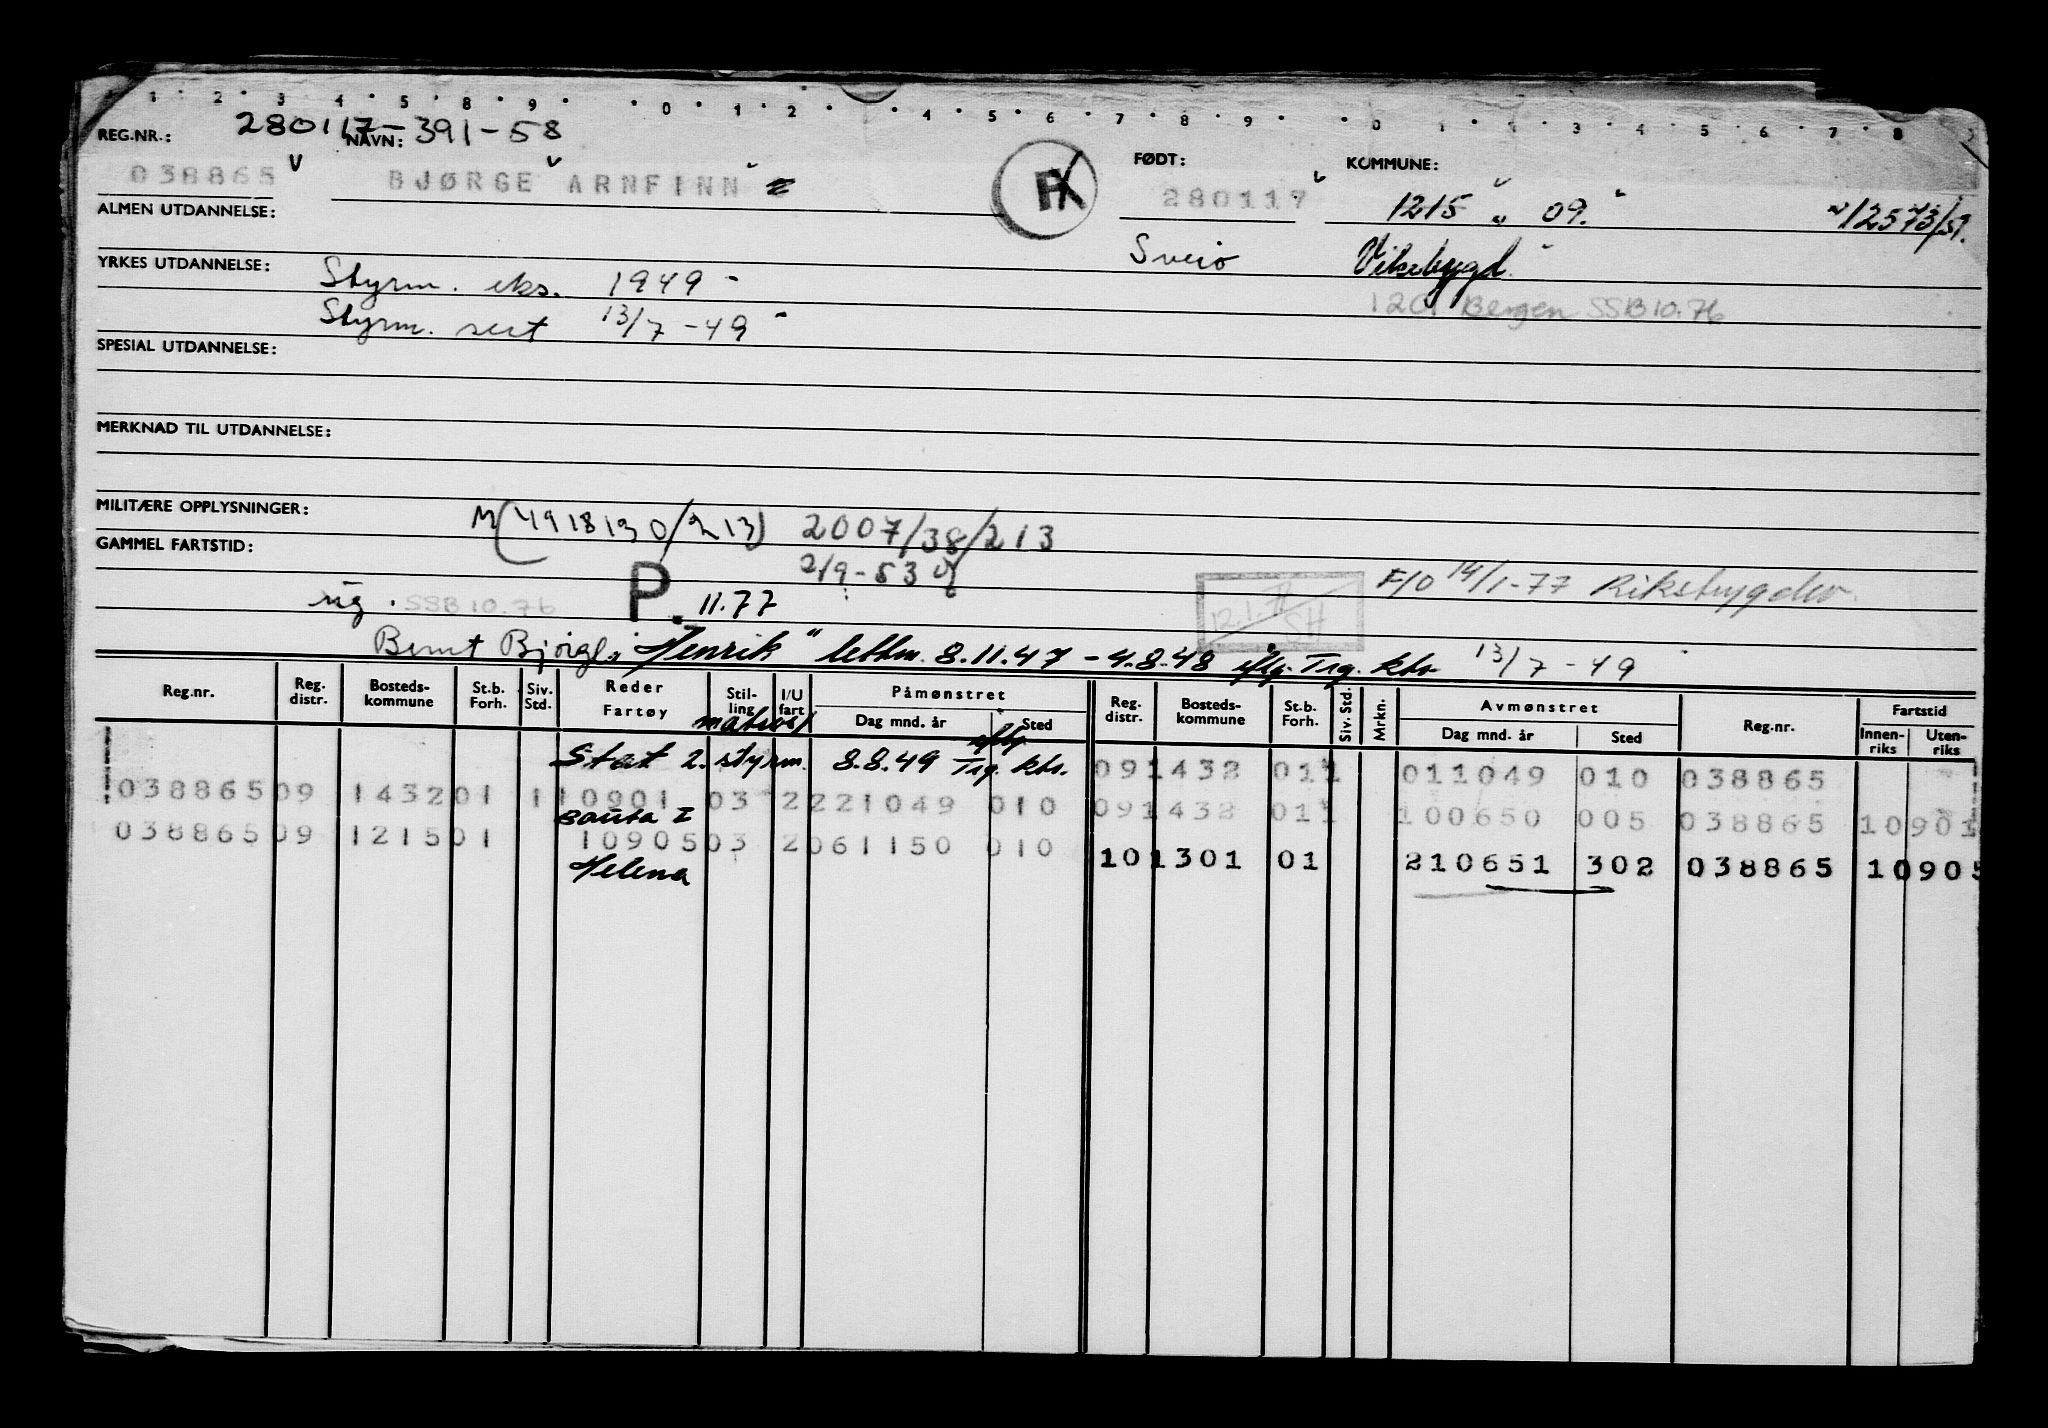 1 2 3 4 5 8 9 0 1 2 4 5 6 7 8 9 0 1 2 3 4 5 6 7 8 9
REG.NR.: 280117-391-58 NAVN: FØDT: KOMMUNE:
038865 BJØRGE ARNFINN 280117 1215 09. 12573/51.
ALMEN UTDANNELSE: Sveio Vikebygd
YRKES UTDANNELSE: Styrm. eks. 1949
1201 Bergen SSB 10.76
Styrm. sert 13/7-49
SPESIAL UTDANNELSE:
MERKNAD TIL UTDANNELSE:
MILITÆRE OPPLYSNINGER: M(4918130/213) 2007/38/213
GAMMEL FARTSTID: 2/9-53
F/O 14/1-77 Riksbygder
ug. SSB 10.76 P. 11.77 12.1.77 SH
Bernt Bjørgl. "Henrik" lettm. 8.11.47 - 4.8.48 iflg. Trg. ktr 13/7-49
Reg.nr. Reg. distr. Bosteds-kommune St.b. Forh. Siv. Std. Reder Fartøy Stil-ling I/U fart Påmønstret Dag mnd. år Sted Reg. distr. Bosteds-kommune St.b. Forh. Siv. Std. Mrkn. Avmønstret Dag mnd. år Sted Reg.nr. Fartstid Innen-riks Uten-riks
matros/ iflg
Stat 2. styrm. 8.8.49 Trg. ktr. 09 1432 01 1 011049 010 038865
038865 09 1432 01 1 10901 03 2 221049 010 09 1432 01 1 100650 005 038865 10901
Bauta I
038865 09 1215 01 10905 03 2 061150 010 10 1301 01 210651 302 038865 10905
Helena